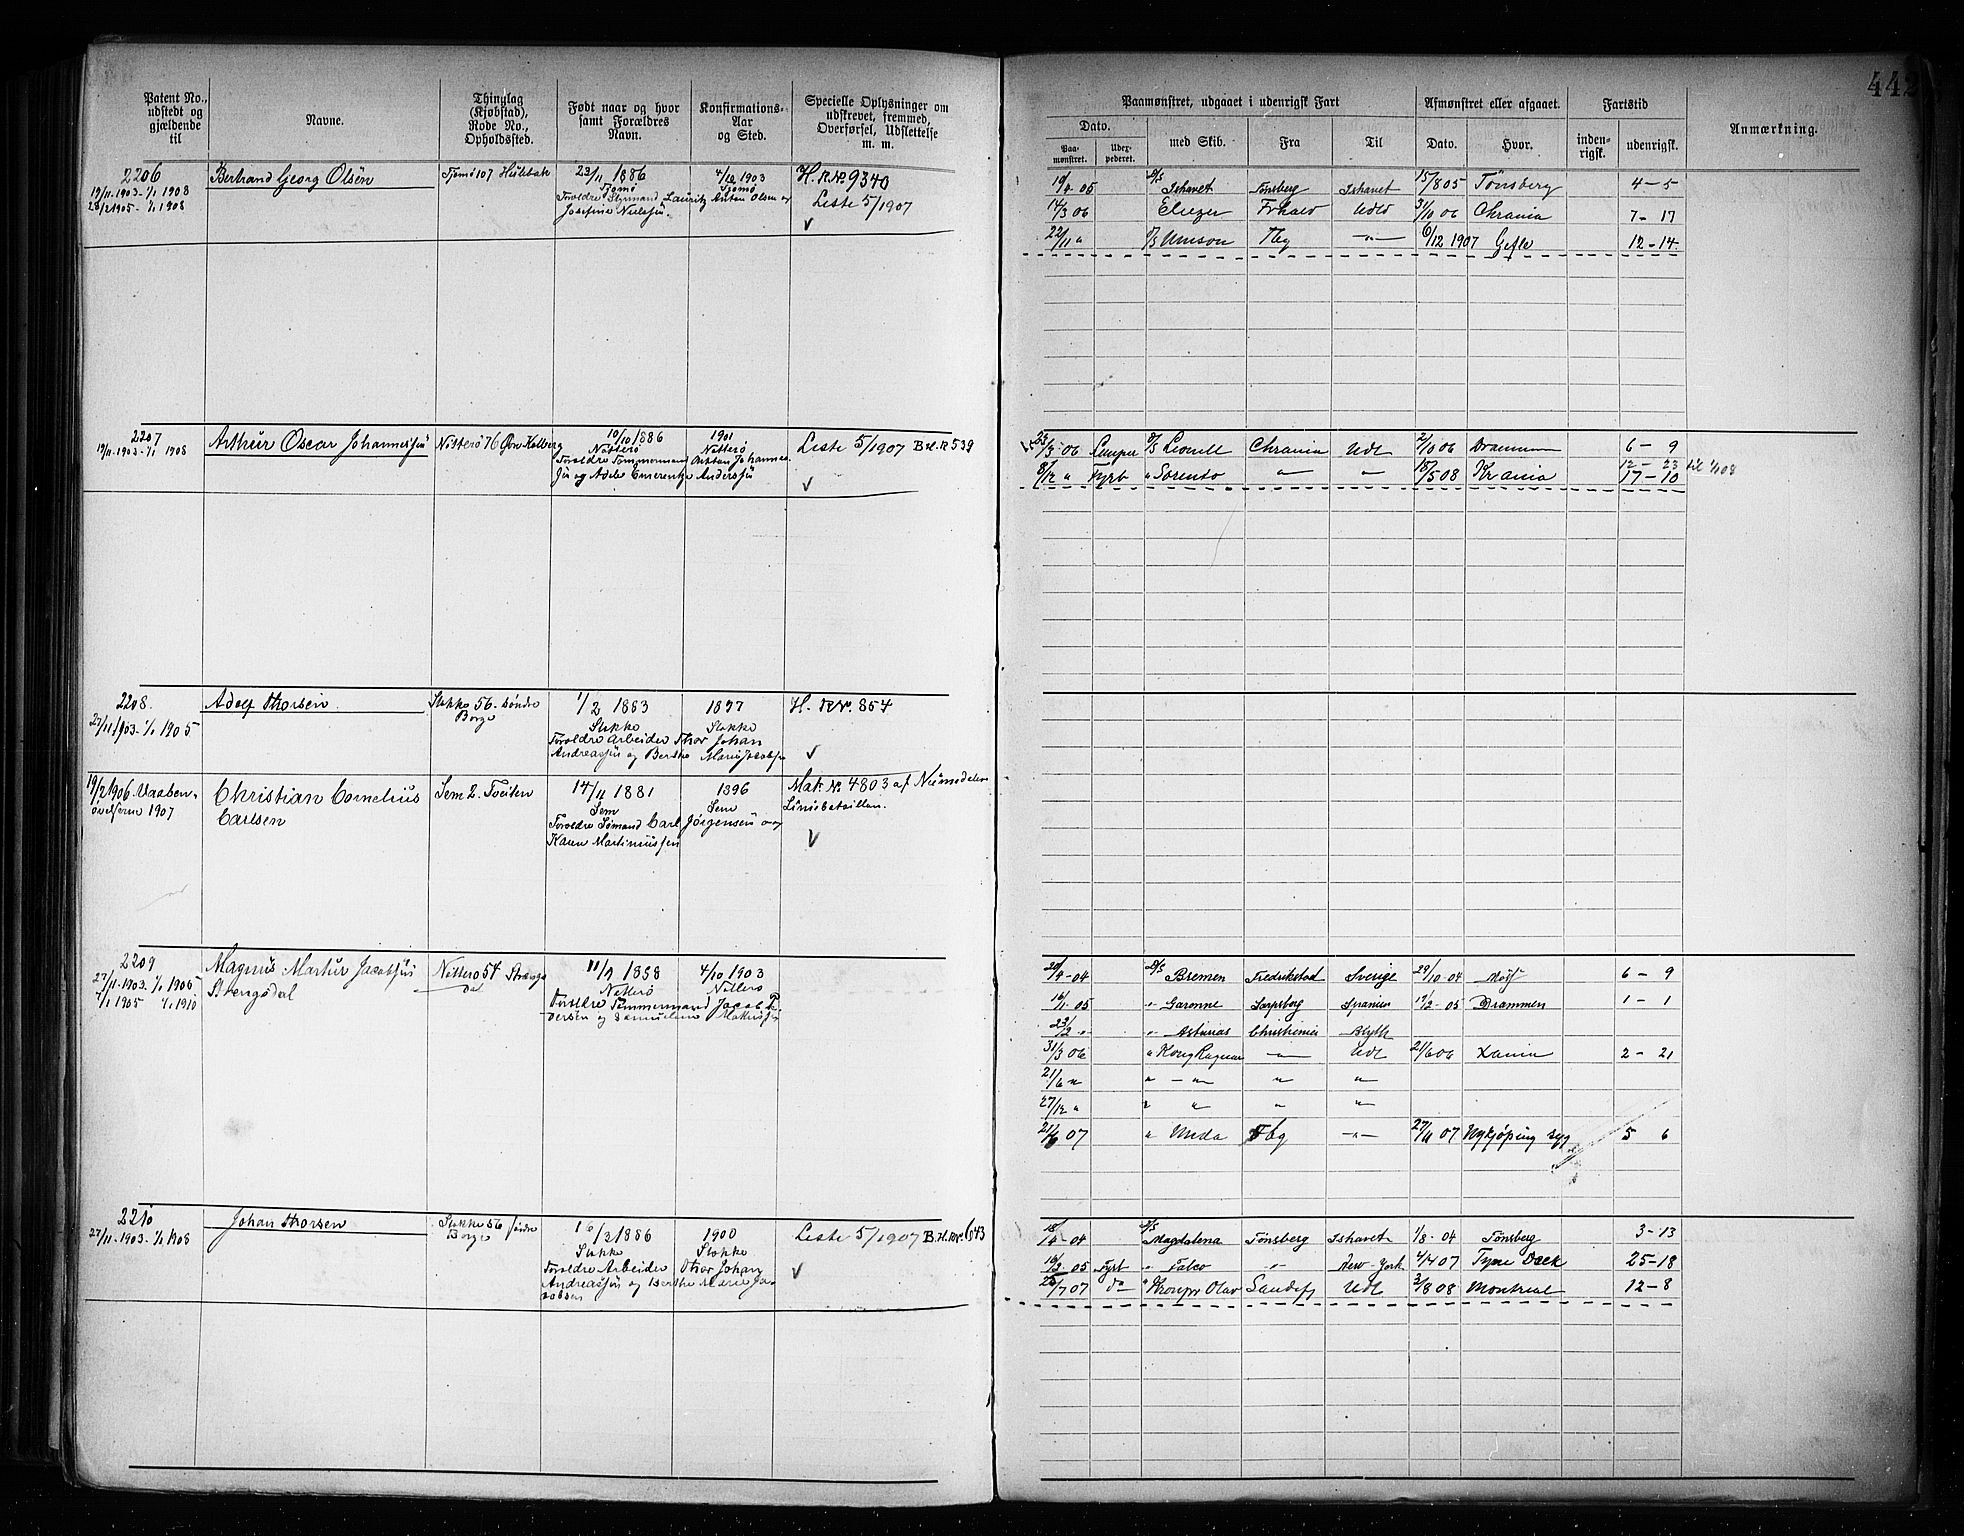 442
Patent No., udstedt og gjældende til
Navne.
Thinglag (Kjøbstad), Rode No., Opholdssted.
Født naar og hvor samt Forældres Navn.
Konfirmations-Aar og Sted.
Specielle Oplysninger om udskrevet, fremmed, Overførsel, Udslettelse m. m.
Paamønstret, udgaaet i udenrigsk Fart
Afmønstret eller afgaaet.
Fartstid
Anmærkning.
Dato.
Paa-mønstret.
Udex-pederet.
med Skib.
Fra
Til
Dato.
Hvor.
inden-rigsk.
udenrigsk.
2206
19/11.1903-1/1 1908
28/2 1905- 1/1 1908
Bertrand Georg Olsen
Tjømø 107
23/11 1886
Tjømø
Forældre Styrmand Lauritz Anton Olsen og
Josefine Nielsen
4/10 1903
Tjømø
H. R. No. 9340
Liste 5/1907
19/4 05 D/S Ishavet Tønsberg Ishavet 15/8 05 Tønsberg 4-5
14/3 06 Eliezer Frhald Udld 31/10 06 Chrania 7-17
22/11 " Unison Tbg -"- 6/12 1907 Gefle 12-14
2207
19/11.1903-1/1 1908
Arthur Oscar Johannessen
Nøtterø 76 Øvre Kolberg
10/10 1886
Nøtterø
Forældre Tømmermand Anton Johannes-
sen og Adele Emerentze Andersen
1901
Nøtterø
Liste 5/1907 B.H.R 539
23/3 06 Lemper D/S Leonill Chrania Udl 2/10 06 Drammen 6-9
8/12 " Fyrb " Sorento " " 18/5 08 Krania 12-23 til 1/1 08
17-10
2208.
27/11.1903-1/1 1905
Adolf Thorsen.
Stokke 56. Søndre
Borge
1/2 1883
Stokke
Forældre Arbeider Thor Johan
Andreassen og Berthe Marie Jacobsen
1897
Stokke
H. R. Nr. 854
19/2 1906. Vaaben-
øvelserne 1907
Christian Cornelius
Carlsen
Sem 2. Tveiten
14/11 1881
Sem
Forældre Sømand Carl Jørgensen og
Karen Martiniussen
1896
Sem
Mak. No 4803 af Numedalens
Liniebataillon.
2209
27/11.1903. 1/1 1905
1/1 1905 1/1 1910
Magnus Martin Jacobsen
Strengsdal
Nøtterø 54 Strengs
dal
11/9 1888
Nøtterø
Forældre Tømmermand Jacob Pe-
dersen og Samueline Mathissen
4/10 1903
Nøtterø
20/4-04 D/S Bremen Fredrikstad Sverige 29/10-04 Moss 6-9
16/1-05 " Garonne Sarpsborg Spanien 19/2-05 Drammen 1-1
23/2 " " Asturias Christiania Blyth
31/3 06 " Kong Ragnar -"- Udl 21/6 06 Xania 2-21
21/6 " " - " " "
27/12 " " " " "
21/6 07 " Unda Fbg -"- 27/11 07 Nykjøping syg 5 6
2210
27/11.1903-1/1 1908
Johan Thorsen
Stokke 56 søndre
Borge
16/2 1886
Stokke
Forældre Arbeider Thor Johan
Andreassen og Berthe Marie Ja-
cobsen
1900
Stokke
Liste 5/1907 B.H.Nr. 1543
18/4-04 D/S Magdalena Tønsberg Ishavet 1/8-04 Tønsberg 3-13
16/2 05 Fyrb " Falco " New-York 4/4 07 Tyne Dock 25-18
26/7 07 do " Kronpr Olav Sandefj Udl 3/8 08 Montreal 12-8